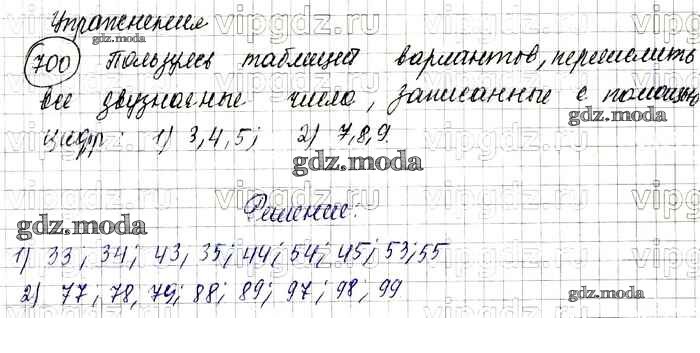 Упражнения
700 Пользуясь таблицей вариантов, перечислить
все двузначные числа, записанные с помощью
цифр: 1) 3,4,5; 2) 7,8,9.
Решение:
1) 33; 34; 43, 35; 44; 54; 45; 53; 55
2) 77, 78, 79; 88; 89; 97; 98; 99
vipgdz.ru
gdz.moda